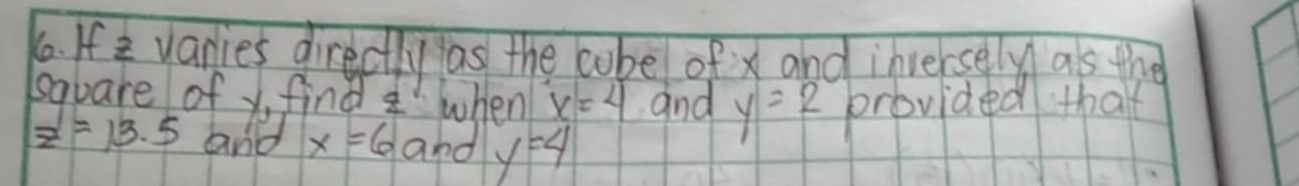 6. If z varies directly as the cube of x and inversely as the
square of y, find z when x=4 and y=2 provided that
z=13.5 and x=6 and y=4